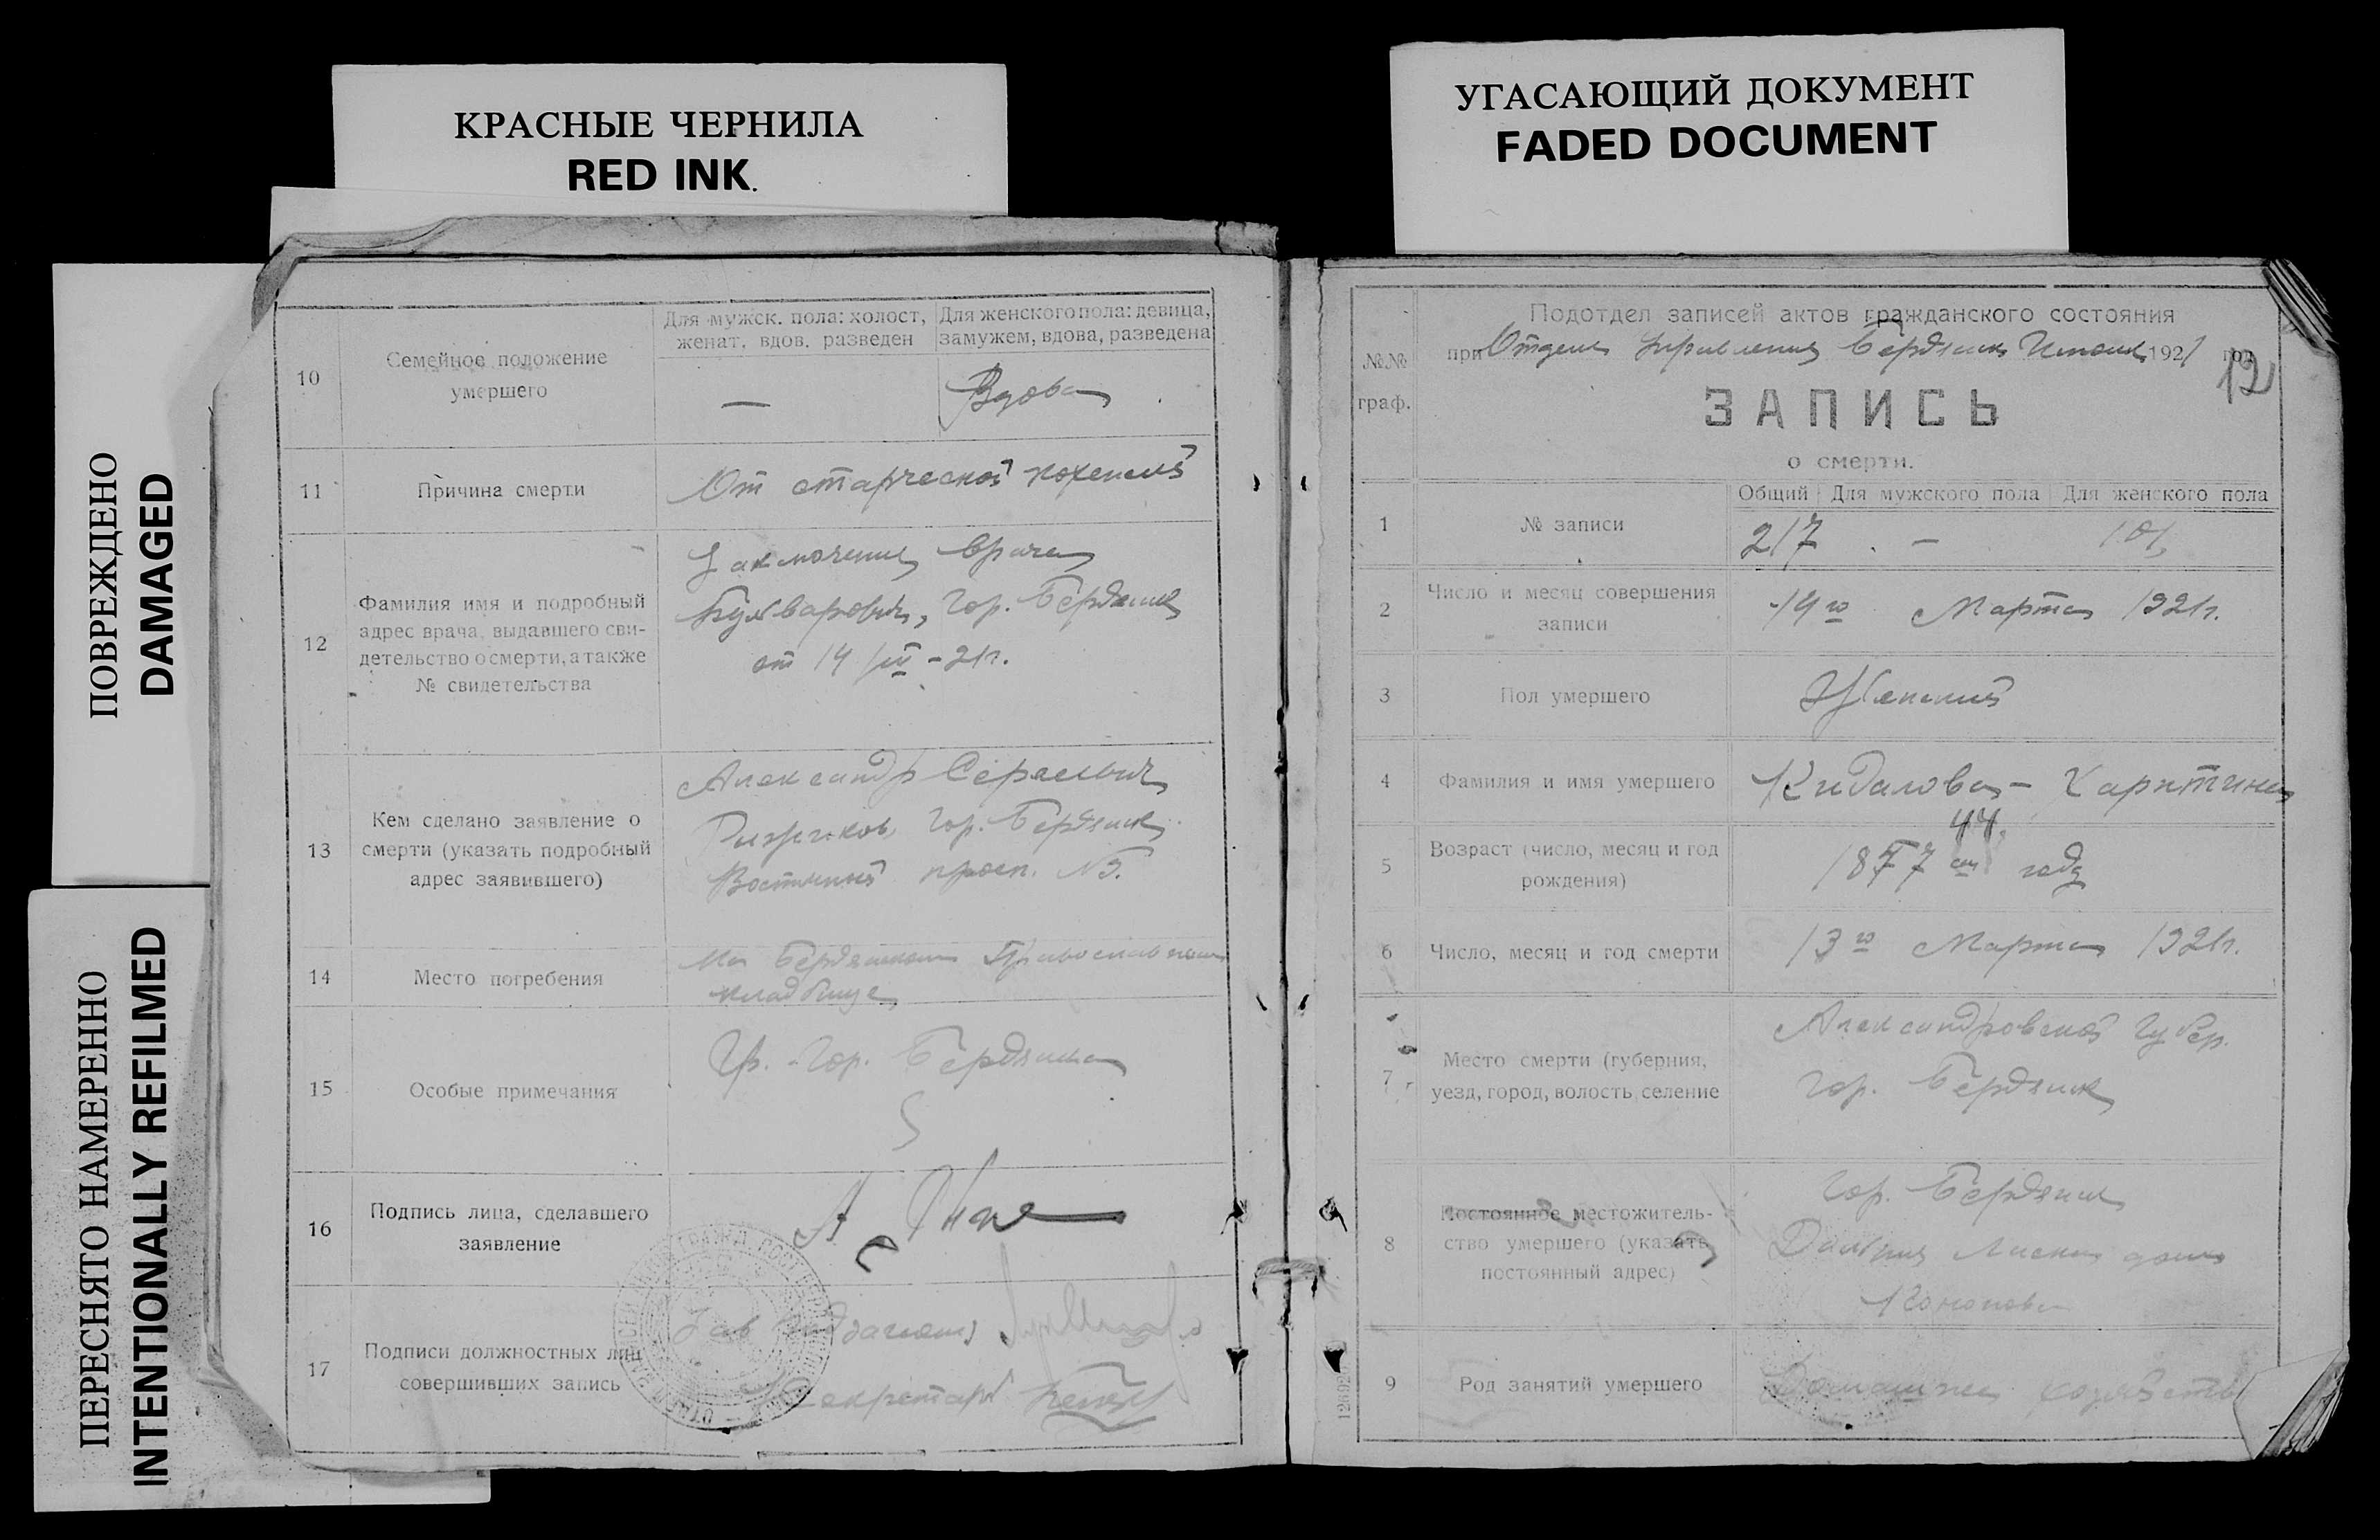 КРАСНЫЕ ЧЕРНИЛА
RED INK.
УГАСАЮЩИЙ ДОКУМЕНТ
FADED DOCUMENT
ПОВРЕЖДЕНО
DAMAGED
ПЕРЕСНЯТО НАМЕРЕННО
INTENTIONALLY REFILMED
10
Семейное положение
умершего
Для мужск. пола: холост,
женат, вдов. разведен
Для женского пола: девица,
замужем, вдова, разведена
—
Вдова
11
Причина смерти
От старческой
12
Фамилия имя и подробный
адрес врача, выдавшего сви-
детельство о смерти, а также
№ свидетельства
Заключение врача
гор. Бердянск
от 14/III-21г.
13
Кем сделано заявление о
смерти (указать подробный
адрес заявившего)
Александр Сергеевич
гор. Бердянск
просп. №5.
14
Место погребения
На Бердянском Православном
кладбище
15
Особые примечания
Гр. гор. Бердянска
16
Подпись лица, сделавшего
заявление
17
Подписи должностных лиц
совершивших запись
Зав. Подзагсом
Секретарь
№№
граф.
Подотдел записей актов гражданского состояния
при Отделе Управления Бердянск 1921 год
12
ЗАПИСЬ
о смерти.
1
№ записи
Общий
Для мужского пола
Для женского пола
217
—
101
2
Число и месяц совершения
записи
14го Марта 1921г.
3
Пол умершего
Женский
4
Фамилия и имя умершего
Кидалова - Харитина
5
Возраст (число, месяц и год
рождения)
44
1877 году
6
Число, месяц и год смерти
13го Марта 1921г.
7
Место смерти (губерния,
уезд, город, волость, селение
Александровской губер.
гор. Бердянск
8
Постоянное местожитель-
ство умершего (указать
постоянный адрес)
гор. Бердянск
дом
Кононова
9
Род занятий умершего
Домашнее хозяйство